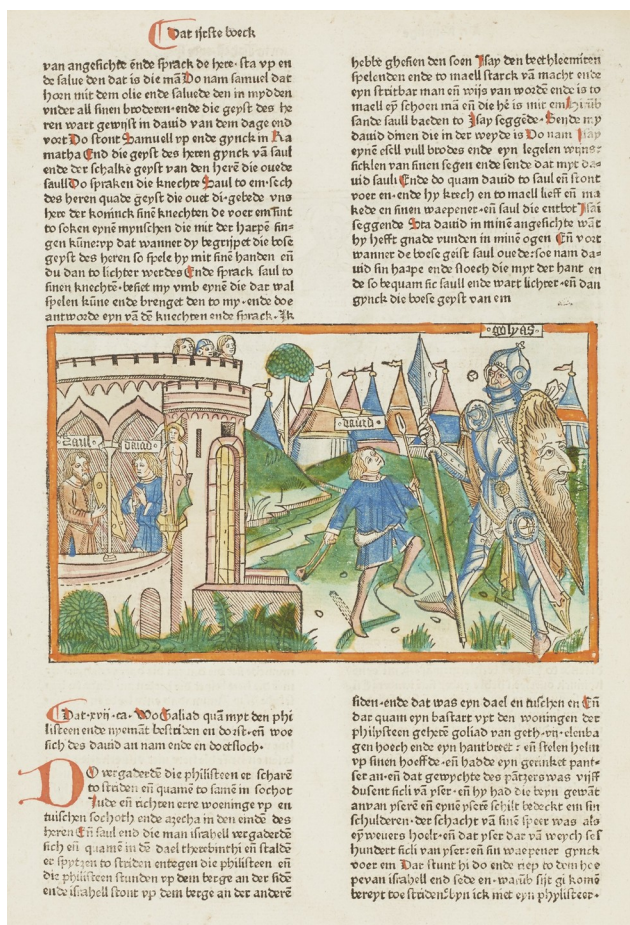 Dat irste boeck
van angesichte ende sprack de here· sta vp en
de salue den dat is die mā Do nam samuel dat
hoen mit dem olie ende saluede den in mydden
vnder all sinen broderen·ende die geyst des he
ren wart gewijst in dauid van dem dage end
voert Do stont Samuell vp ende gynck in Ra
matha End die geyst des heren gynck vā saul
ende der schalke geyst van den herē die ouede
saull Do spraken die knechte Saul to em·sech
des heren quade geyst die ouet di·gebede vns
here der koninck sinē knechten de voer em sint
to soken eynē mynschen die mit der harpē sin-
gen kūne·vp dat wanner dy begrijpet die bose
geyst des heren so spele hy mit sinē handen eñ
du dan to lichter werdes Ende sprack saul to
sinen knechtē·besiet my vmb eynē die dat wal
spelen kūne ende brenget den to my·ende doe
antworde eyn vā dē knechten ende sprack·Ik
hebbe ghesien den soen Isay den bethleemiten
spelenden ende to maell starck vā macht ende
eyn stritbar man eñ wijs van wordē ende is to
maell ey schoen mā eñ die hē is mit em Hirūb
sande saull baeden to Isay seggēde·Sende my
dauid dinen die in der weyde is Do nam Isay
eynē esell vull brodes ende eyn legelen wijns·
sicklen van sinen segen ende sende dat myt da-
uid sauli Ende do quam dauid to saul eñ stont
voer en·ende hy krech en to maell lieff eñ ma
kede en sinen waepener·eñ saul die entbot Isai
seggende Sta dauid in minē angesichte wāt
hy hefft gnade vunden in minē ogen Eñ voert
wanner de boese geist saul ouede·soe nam da-
uid sin harpe ende sloech die myt der hant en
de so bequam sic saull ende wart lichter·eñ dan
gynck die boese geyst van em
golyas
Saul
dauid
dauid
Dat·xvij·ca· Wo Goliad quā myt den phi
listeen ende nyemāt bestriden en dorst·eñ woe
sich des dauid an nam ende en doetsloch·
DO vergaderdē die philisteen er scharē
to striden eñ quamē to samē in sochot
Iude eñ richten erre woeninge vp en
tuischen sochoth ende azecha in den eindē des
heren Eñ saul end die man israhell vergaderdē
sich eñ quamē in dē dael therebinthi eñ staldē
er spytzen to striden entegen die philisteen eñ
die philisteen stunden vp dem berge an der sidē
ende israhell stont vp dem berge an der anderē
siden·ende dat was eyn dael en tuschen en Eñ
dar quam eyn bastart vyt den woningen der
philysteen geherē goliad van geth·vij·elenba
gen hoech ende eyn hantbreet : eñ stelen helm
vp sinen hoeffde·eñ hadde eyn gerinket pant-
ser an·eñ dat gewychte des pātzers was vijff
dusent sicli vā yser·eñ hy had die beyn gewāt
an van yserē eñ eynē yserē schilt bedeckt em sin
schulderen·der schacht vā sinē speer was als
ey weuers hoelt·eñ dat yser dar vā weych ses
hundert sicli van yser:eñ sin waepener gynck
voer em Dar stunt hi do ende riep to dem hee
pe van israhell end sede en·warūb sijt gi komē
bereyt toe striden: byn ick niet eyn phylisteer·